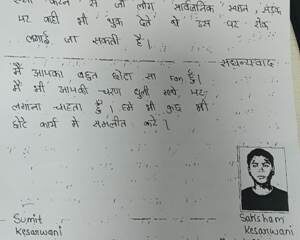 करने से जो लोग सार्वजनिक स्थान, सड़क
पर कहीं भी थुक देते हो उस पर रोक
लगाई जा सकती है।
सधन्यवाद
मैं आपका बहुत छोटा सा fan हूँ।
मैं भी आपकी चरण धुली माथे पर
लगाना चाहता हूँ। हमें भी कुछ भी
छोटे कार्य में समलीत करे।
Sumit
Kesarwani
Saksham
Kesarwani